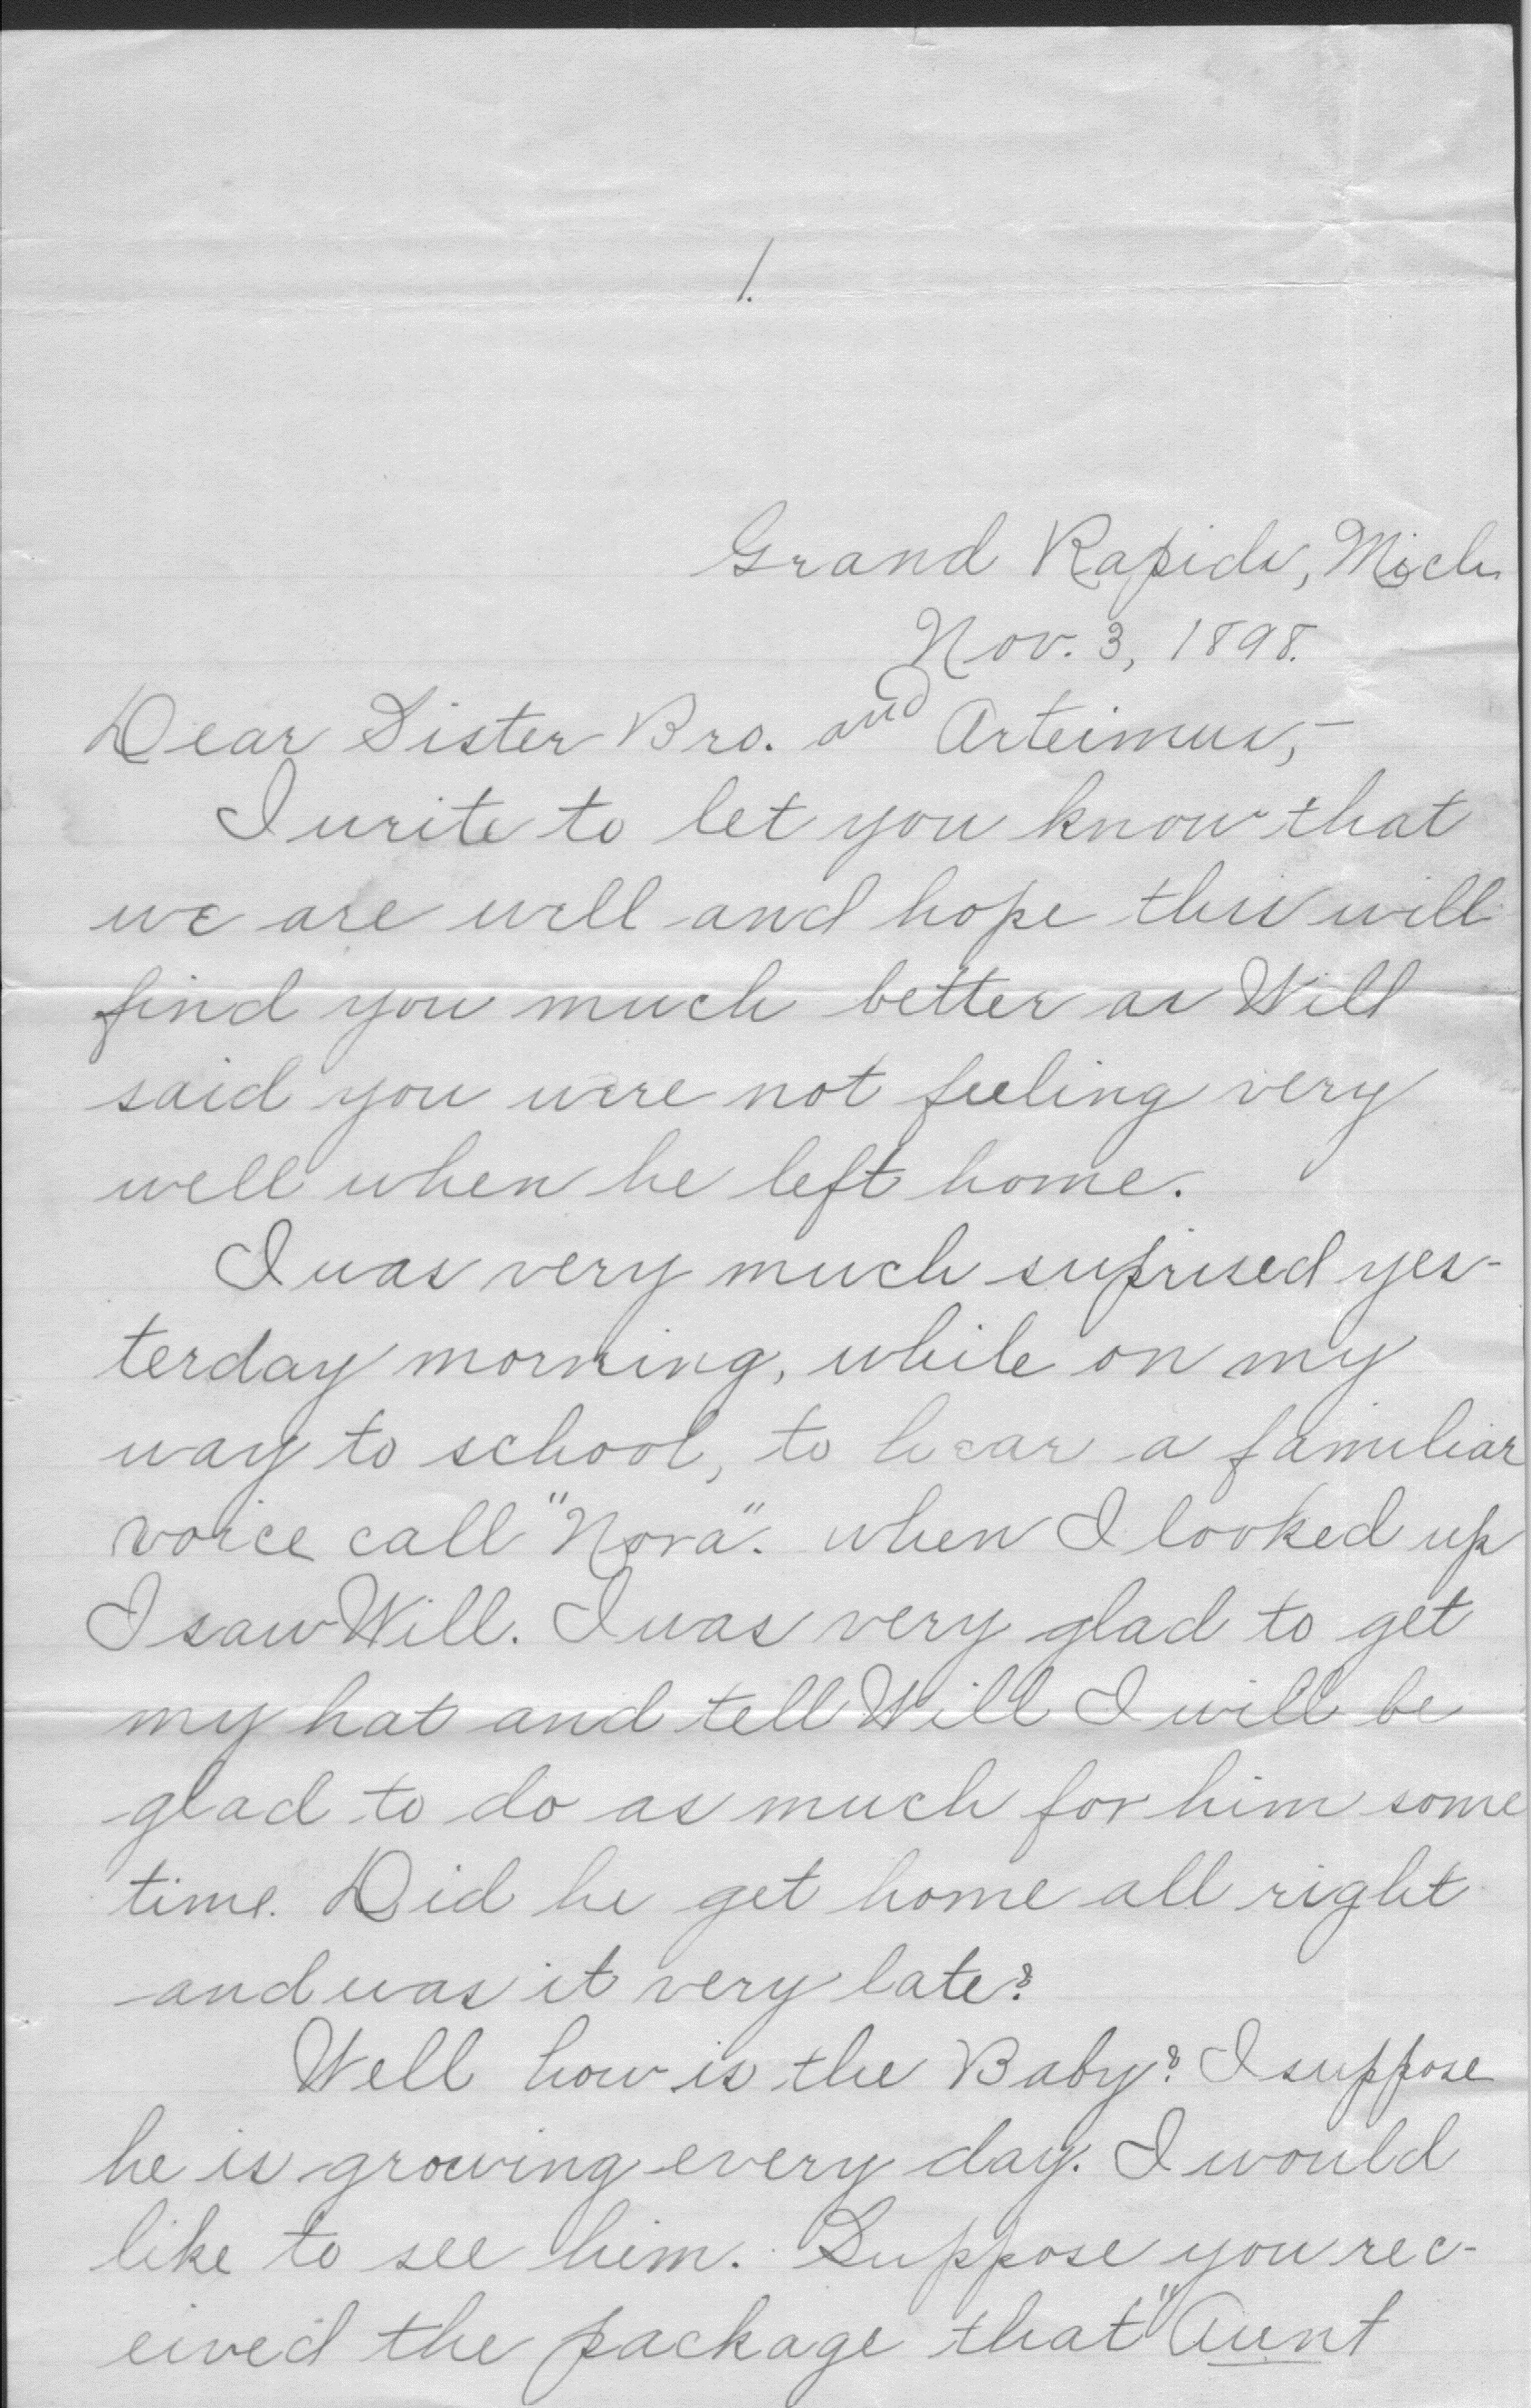 1.
Grand Rapids, Mich.
Nov. 3, 1898.
Dear Sister Bro. and Arteimus,-
I write to let you know that
we are well and hope this will
find you much better as Will
said you were not feeling very
well when he left home.
I was very much suprised yes-
terday morning, while on my
way to school, to hear a familiar
voice call "Nora". when I looked up
I saw Will. I was very glad to get
my hat and tell Will I will be
glad to do as much for him some
time. Did he get home all right
and was it very late?
Well how is the Baby? I suppose
he is growing every day. I would
like to see him. Suppose you rec-
eived the package that "Aunt